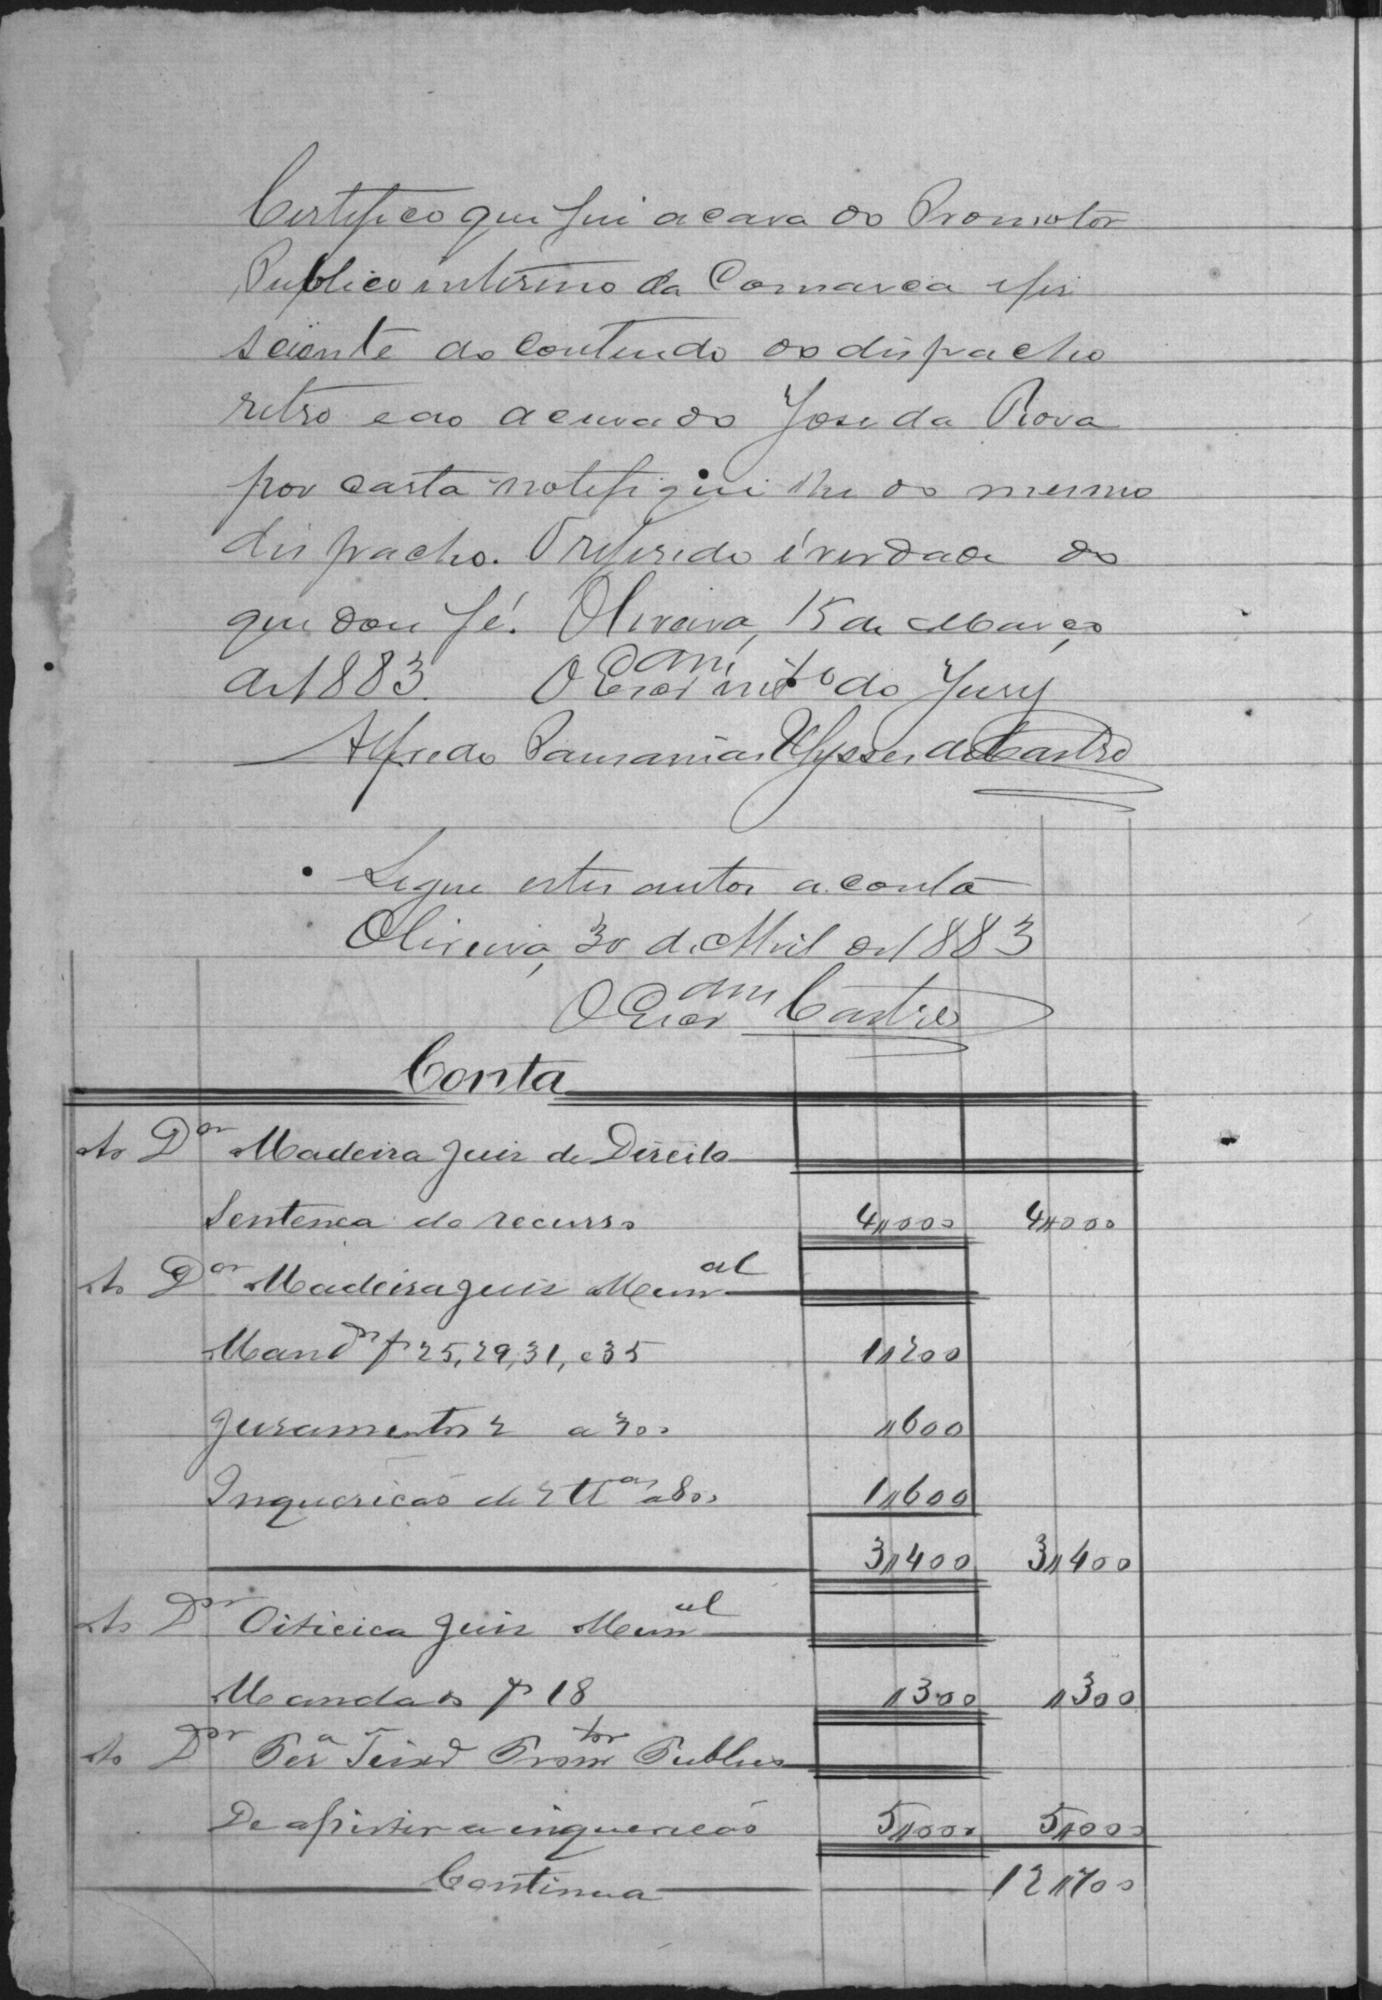 Certifico que fui a casa do Promotor
Publico interino da Comarca e fis
sciente do contendo do dispacho
retro e ao acusado José da Rova
por carta notifiquei lhe do mesmo
dispacho. O referido é verdade do
que dou fé. Oliveira, 15 de Março
de 1883. O Escr am int.o do Jury
Alfredo Pausanias Ulysses de Castro
Segue estes autos a conta
Oliveira, 30 de Abril de 1883
O Escr am Castro
Conta
Ao Dor Madeira Juis de Direito
Sentenca do recurso 4,,000 4,,000
Ao Dor Madeira Juis Munal
Mandos f 25, 29, 31, e 35 1,,200
Juramentos 2 a 300 ,,600
Inquericão de 2 ttas a 800 1,,600
3,,400 3,,400
Ao Dor Oiticica Juis Munal
Mandado f 18 ,,300 ,,300
Ao Dor Per.a Teixr Promtor Publico
De assistir a inquericão 5,,000 5,,000
Continua 12,,700